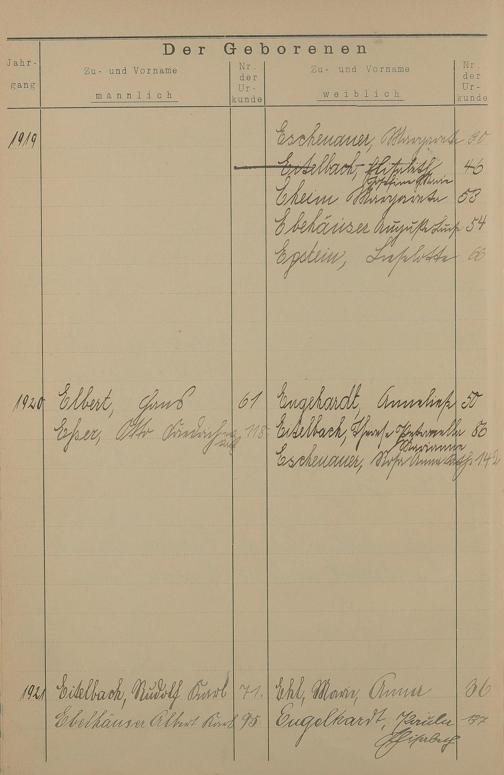 Der Geborenen
Jahr-
gang
Zu- und Vorname
männlich
Nr.
der
Ur-
kunde
Zu- und Vorname
weiblich
Nr.
der
Ur-
kunde
1919
Eschenauer, Margarete 30
Eitelbach, Elisabeth 46
Marie
Eheim Margarete 53
Ebehäuser Auguste 54
Epstein, Lieselotte 66
1920 Elbert, Hans 61 Engehardt, Anneliese 50
Esser, Otto 118 Eitelbach, Therese 80
Marianne
Eschenauer, Rosa Anna 142
1921 Eitelbach, Rudolf Karl 71. Ehl, Marie, Anna 36
Ebelhäuser Albert Kurt 95 Engelhardt, Paula
Elisabeth